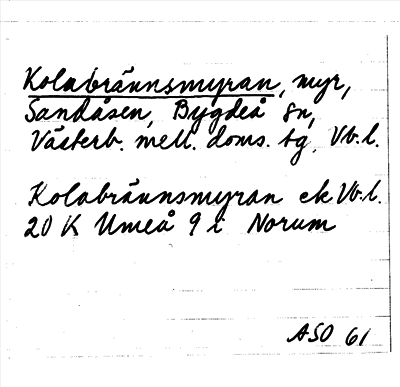 Kolabrännsmyran, myr,
Sandåsen, Bygdeå sn,
Västerb. mell. doms. tg, Vb.l.
Kolabrännsmyran ek Vb.l.
20 K Umeå 9 i Norum
ASO 61